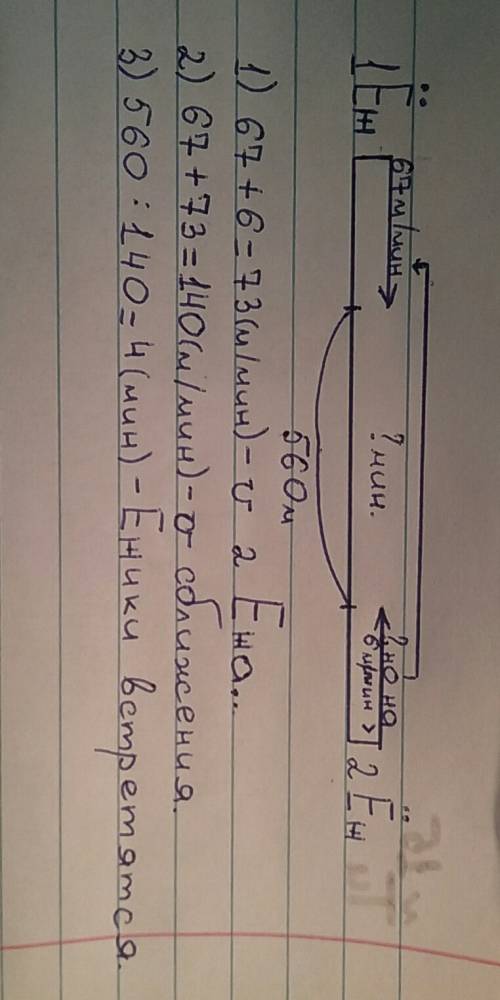 1 Еж 67м/мин ? мин. ? но на 2 Ёж
6 м/мин >
560м
1) 67 + 6 = 73(м/мин) - v 2 Ежа..
2) 67 + 73 = 140(м/мин) - v сближения.
3) 560 : 140 = 4 (мин) - Ежики встретятся.